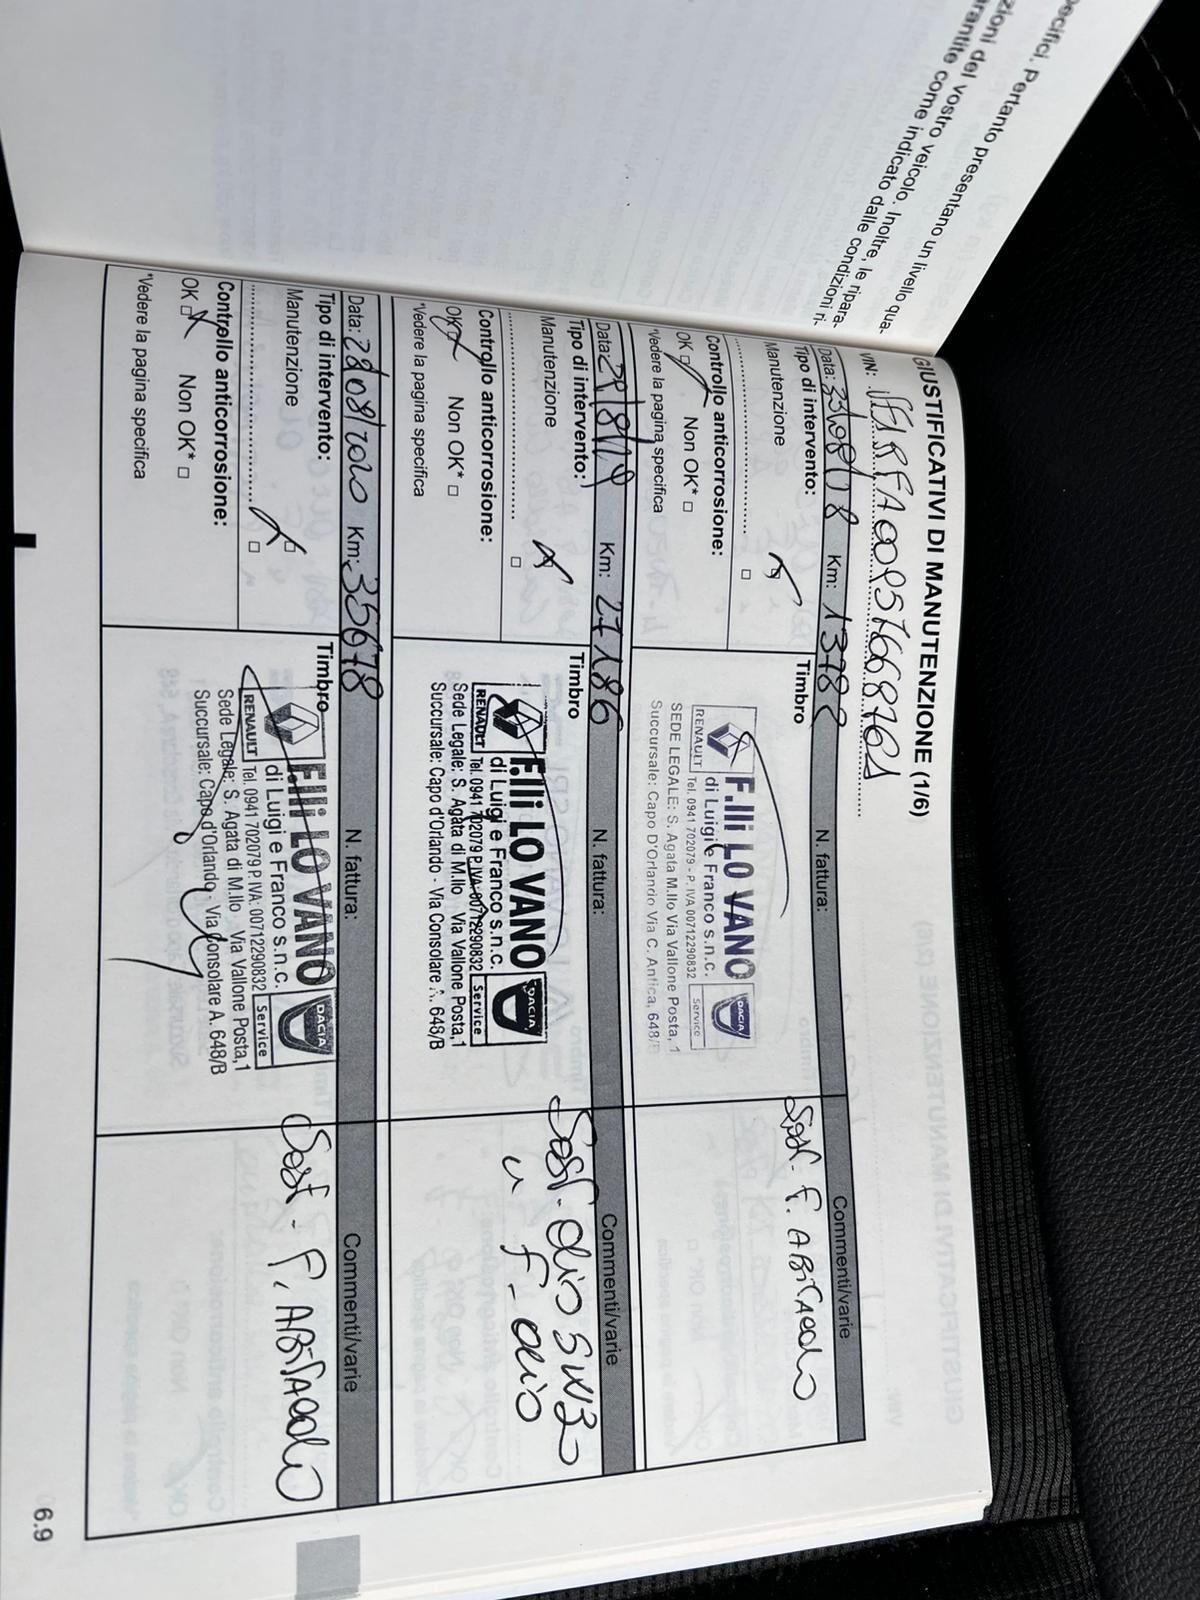 pecifici. Pertanto presentano un livello qua-
zioni del vostro veicolo. Inoltre, le ripara-
rantite come indicato dalle condizioni ri-
GIUSTIFICATIVI DI MANUTENZIONE (1/6)
VIN:
Data: 23/08/18 Km: N. fattura: Commenti/varie
Tipo di intervento:
Manutenzione
Controllo anticorrosione:
OK Non OK* □
*Vedere la pagina specifica
Timbro
RENAULT
F.lli LO VANO
di Luigi e Franco s.n.c.
Tel. 0941 702079 - P. IVA 00712290832
SEDE LEGALE: S. Agata M.llo Via Vallone Posta, 1
Succursale: Capo D'Orlando Via C. Antica, 648/B
DACIA
Service
Sost. F. ABITACOLO
Data: 29/8/19 Km: 27186 N. fattura: Commenti/varie
Tipo di intervento:
Manutenzione
Controllo anticorrosione:
OK Non OK* □
*Vedere la pagina specifica
Timbro
RENAULT
F.lli LO VANO
di Luigi e Franco s.n.c.
Tel. 0941 702079 P.IVA: 00712290832
Sede Legale: S. Agata di M.llo Via Vallone Posta,1
Succursale: Capo d'Orlando - Via Consolare A. 648/B
DACIA
Service
Sost. olio 5W30
" F. olio
Data: 28/08/2020 Km: 35678 N. fattura: Commenti/varie
Tipo di intervento:
Manutenzione
Controllo anticorrosione:
OK Non OK* □
*Vedere la pagina specifica
Timbro
RENAULT
F.lli LO VANO
di Luigi e Franco s.n.c.
Tel. 0941 702079 P.IVA: 00712290832
Sede Legale: S. Agata di M.llo Via Vallone Posta,1
Succursale: Capo d'Orlando - Via Consolare A. 648/B
DACIA
Service
Sost. F. ABITACOLO
6.9